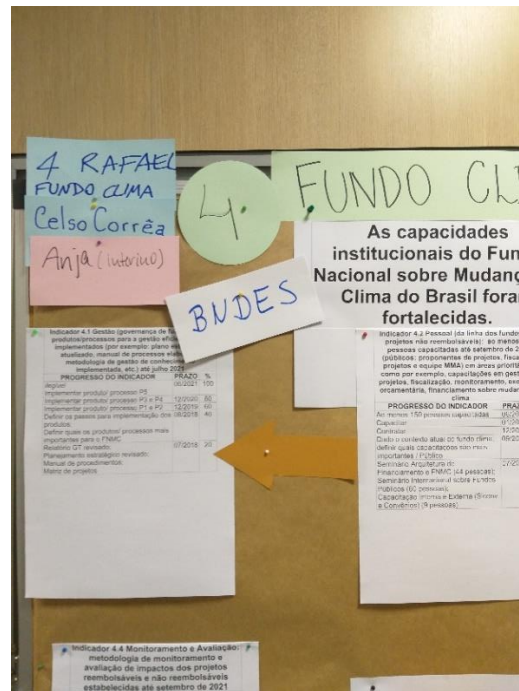 4 RAFAEL
FUNDO CLIMA
Celso Corrêa
Anja (interino)
4.
FUNDO CL
BNDES
As capacidades
institucionais do Fun
Nacional sobre Mudanç
Clima do Brasil fora
fortalecidas.
Indicador 4.1 Gestão (governança de
produtos/processos para a gestão
implementados (por exemplo: plano
atualizado, manual de processos
metodologia de gestão de
implementada, etc.) até julho
PROGRESSO DO INDICADOR PRAZO %
06/2021 100
Implementar produto/ processo P5
Implementar produto/ processo P3 e P4 12/2020 80
Implementar produto/ processo P1 e P2 12/2019 60
Definir os passos para implementação dos 08/2018 40
produtos
Definir quais os produtos/ processos mais
importantes para o FNMC
Relatório GT revisado; 07/2018 20
Planejamento estratégico revisado;
Manual de procedimentos;
Matriz de projetos
Indicador 4.2 Pessoal (da linha dos fundo
projetos não reembolsáveis): ao menos
pessoas capacitadas até setembro de 2
(públicos: proponentes de projetos, fisca
projetos e equipe MMA) em áreas priorit
como por exemplo, capacitações em gest
projetos, fiscalização, monitoramento,
orcamentária, financiamento sobre mudan
clima
PROGRESSO DO INDICADOR PRAZ
Ao menos 150 pessoas capacitadas
Capacitar
Contratar
Dado o contexto atual do fundo clima,
definir quais capacitações são mais
importantes / Público
Seminário Arquitetura de
Financiamento e FNMC (44 pessoas);
Seminário Internacional sobre Fundos
Públicos (60 pessoas);
Capacitação Interna e Externa
e Convênios) (9 pessoas)
Indicador 4.4 Monitoramento e Avaliação:
metodologia de monitoramento e
avaliação de impactos dos projetos
reembolsáveis e não reembolsáveis
estabelecidas até setembro de 2021